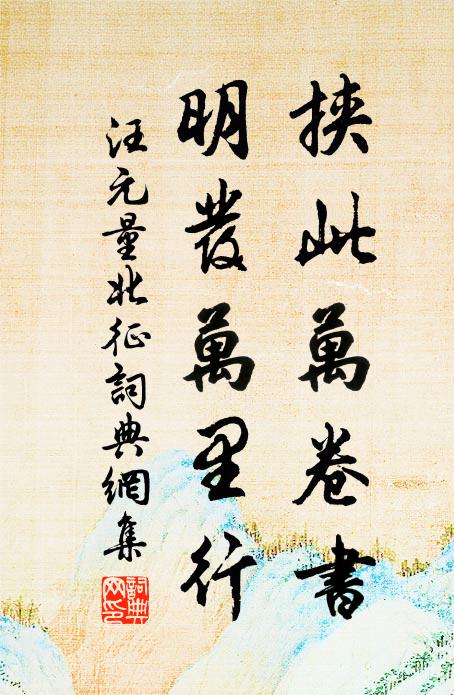 挾此萬卷書
明發萬里行
汪元量北征詞典網集
詞典網印